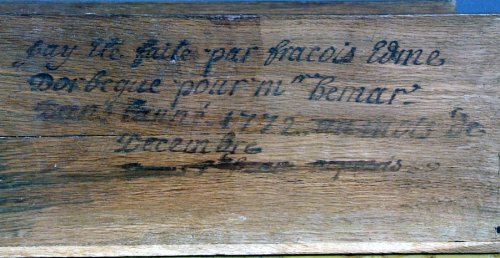 jay Ete faite par fracois Edme
Dorbeque pour mr bemar.
Dans lanné 1772 au mois De
Decembre